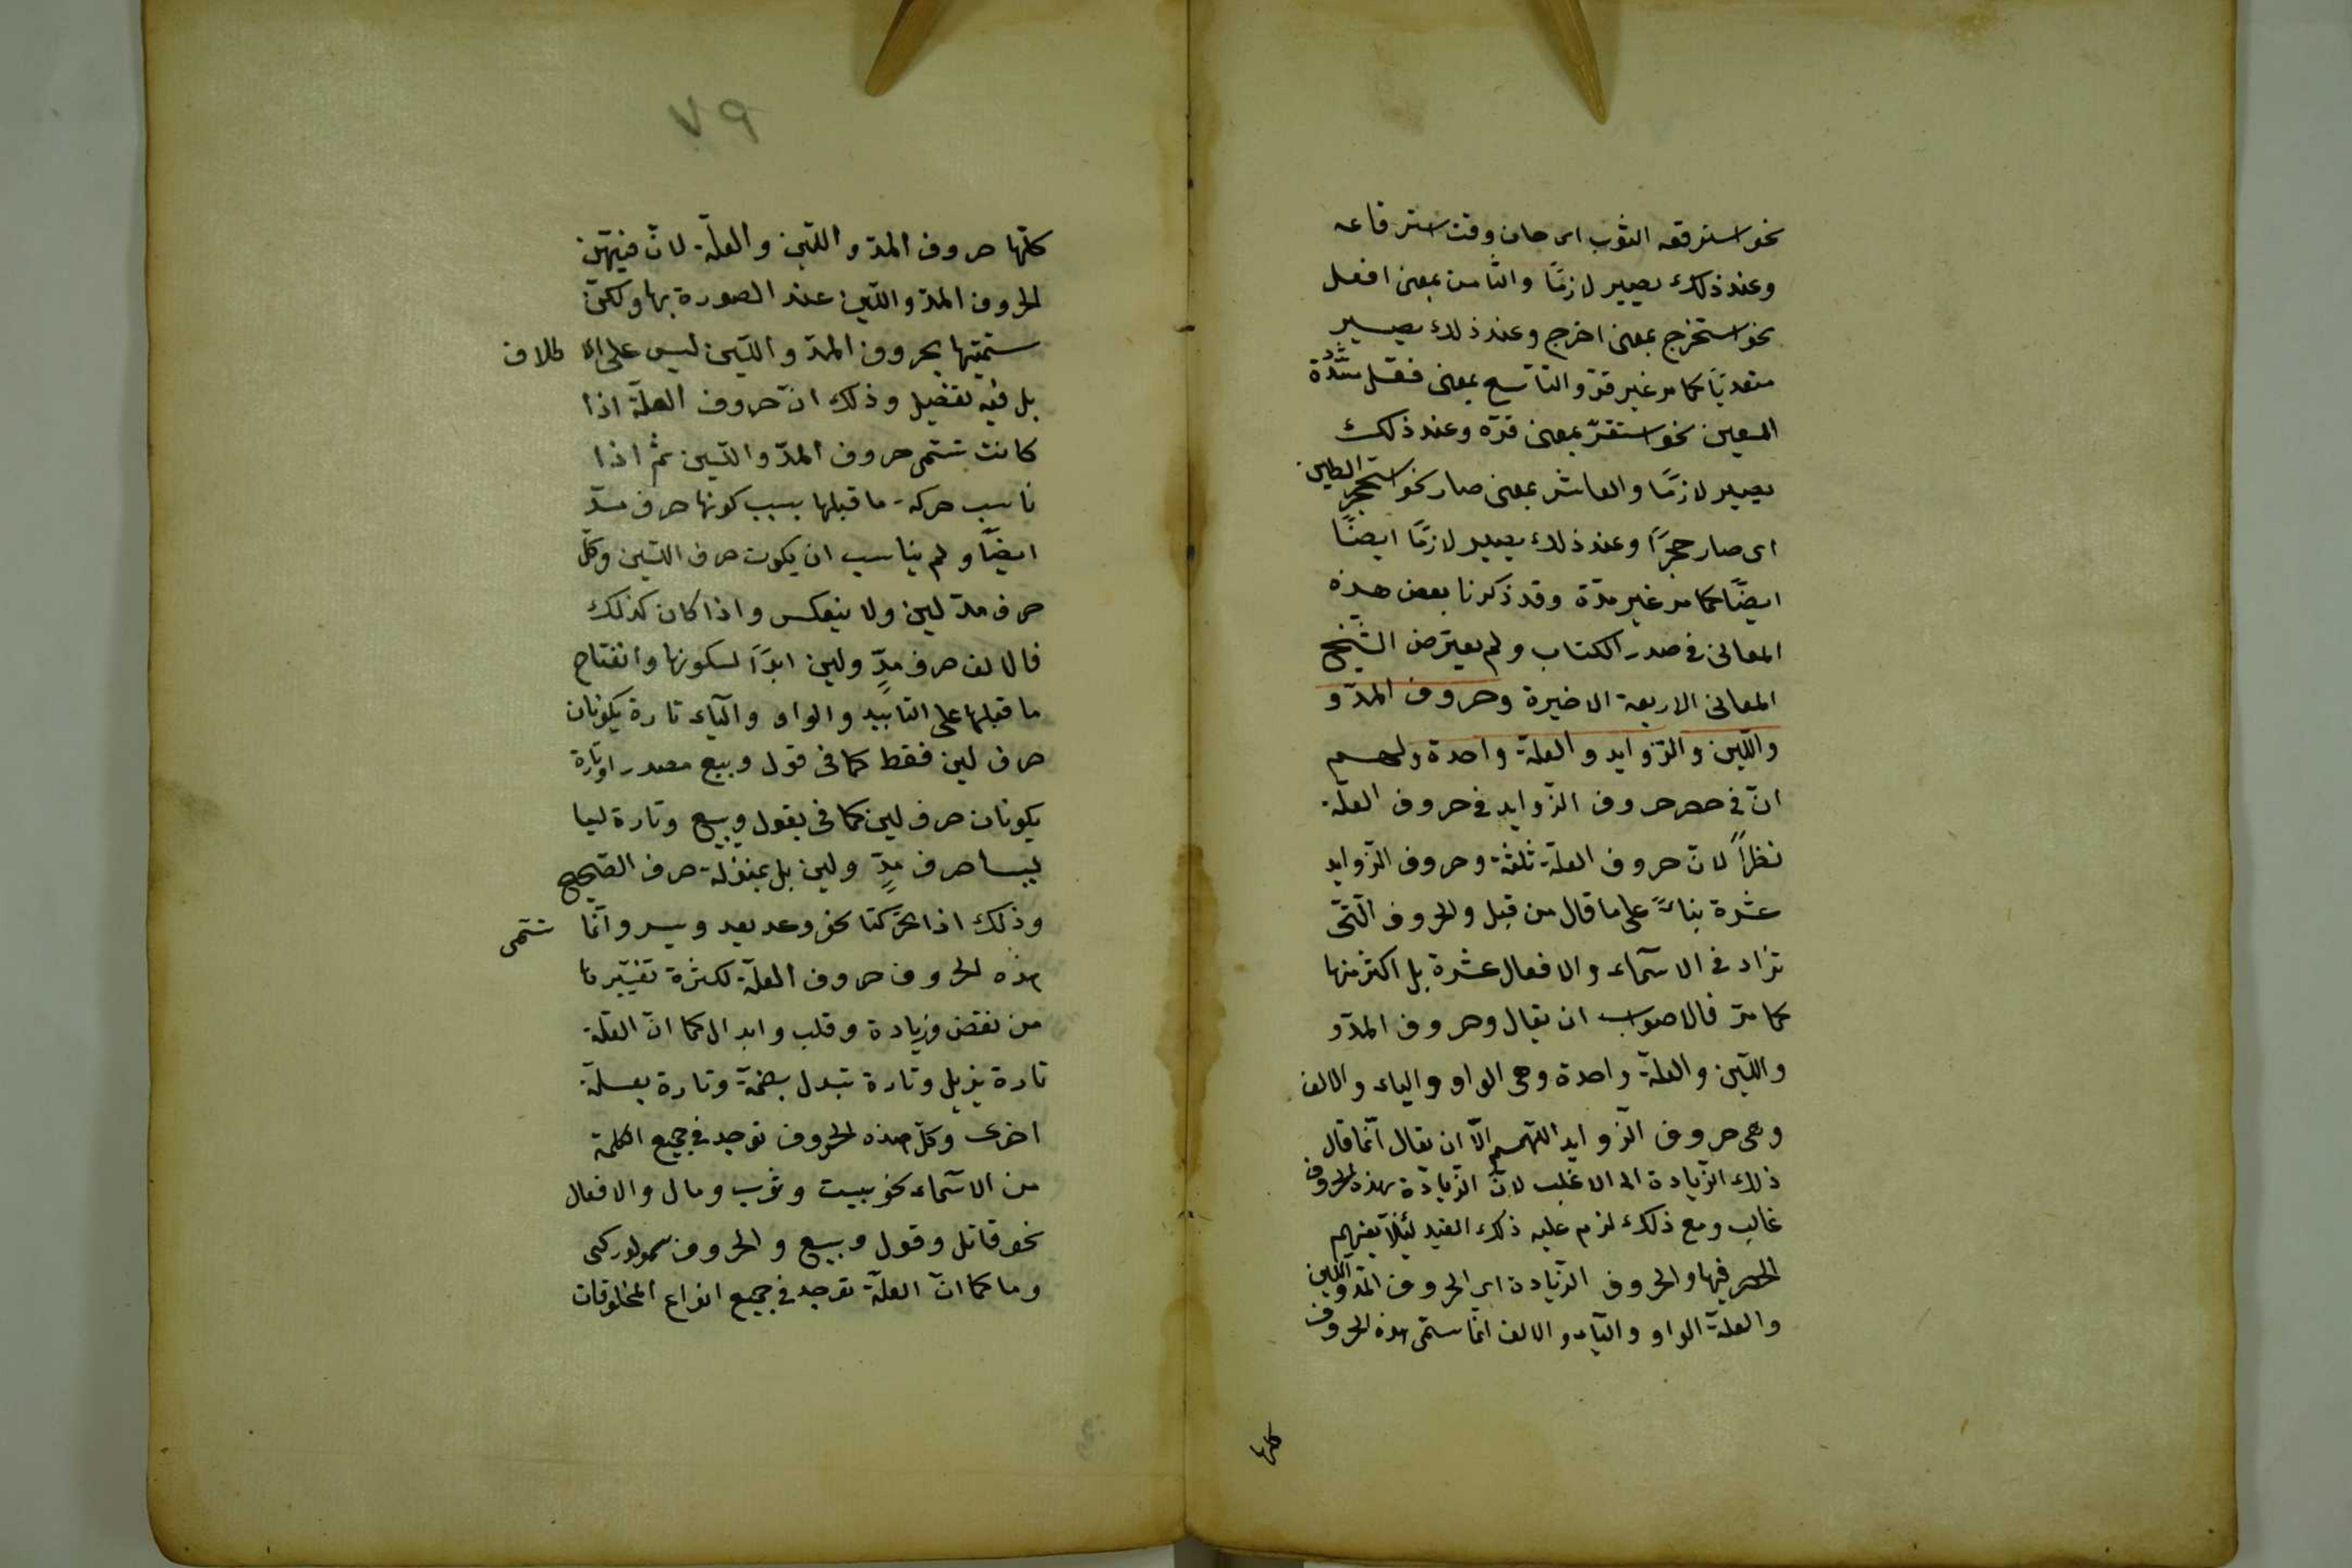 نحو استرقعه الثوب اى حان وقت استرقاعه
وعند ذلك يصير لازمًا والثامن بمعنى افعل
نحو استخرج بمعنى اخرج وعند ذلك يصير
متعديًا كما مر غير مرّة والتّاسع بمعنى فعّل مشدّدة
العين نحو استقرّ بمعنى قرّه وعند ذلك
يصير لازمًا والعاشر بمعنى صار نحو استحجر الطين
اى صار حجرًا وعند ذلك يصير لازمًا ايضًا
ايضًا كما مر غير مرّة وقد ذكرنا بعض هذه
المعانى فى صدر الكتاب ولم يعترض الشّيخ
المعانى الاربعة الاخيرة وحروف المدّ و
واللّين والزّوايد والعلّة واحدة
انّ فى حصر حروف الزّوايد فى حروف العلّة
نظرًا لانّ حروف العلّة ثلثة وحروف الزّوايد
عشرة بناءً على ما قال من قبل والحروف الّتى
تزاد فى الاسمآء والافعال عشرة بل اكثر منها
كما مرّ فالاصوب ان يقال وحروف المدّ و
واللّين والعلّة واحدة وهى الواو والياء والالف
وهى حروف الزّوايد اللّهم الّا ان يقال انّما قال
ذلك الزّيادة الى الاغلب لانّ الزّيادة بهذه الحروف
غالب ومع ذلك لزم عليه ذلك القيد لئلّا يفهم
الحصر فيها والحروف الزّيادة اى الحروف المدّ واللّين
والعلّة الواو واليآء والالف انّما سمّى هذه الحروف
كلها
٧٩
كلّها حروف المدّ واللّين والعلّة لانّ فيهنّ
الحروف المدّ واللّين عند الصورة بها ولكنّ
ستميتها بحروف المدّ واللّين ليس على الاطلاق
بل فيه تفصيل وذلك انّ حروف العلّة اذا
كانت تسمّى حروف المدّ واللّين ثم اذا
ناسب حركة ما قبلها بسبب كونها حرف مدّ
ايضًا ولم يناسب ان يكون حرف اللّين وكلّ
حرف مدّ لين ولا ينعكس واذا كان كذلك
فالالف حرف مدٍّ ولين ابدًا لسكونها وانفتاح
ما قبلها على التابيد والواو واليآء تارة يكونان
حرف لين فقط كما فى قول وبيع مصدر او تارة
يكونان حرف لين كما فى يقول ويبيع وتارة ليسا
ليسا حرف مدٍّ ولين بل بمنزلة حرف الصّحيح
وذلك اذا تحرّكتا نحو وعد يعد ويسر وانّما تسمّى
هذه الحروف حروف العلّة لكثرة تغيّرها
من نقص وزيادة وقلب وابدال كما انّ العلّة
تارة يزيل وتارة تبدل بصحّة وتارة بعلّة
اخرى وكلّ هذه الحروف توجد فى جميع الكلمة
من الاسمآء نحو بيت وثوب ومال والافعال
نحو قاتل وقول وبيع والحروف نحو لو وكى
وما كما انّ العلّة توجد فى جميع انواع المخلوقات